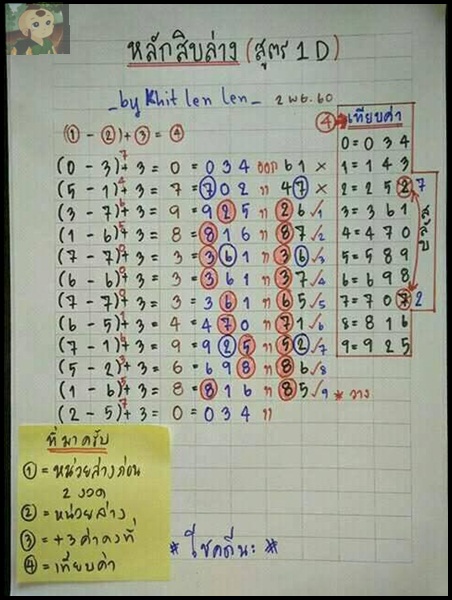 หลักสิบล่าง (สูตร 1D)
_by Khit len len_ 2 พย. 60
④ เทียบค่า
(① - ②) + ③ = ④
0 = 0 3 4
1 = 1 4 3
2 = 2 5 2 7
3 = 3 6 1
4 = 4 7 0
5 = 5 8 9
6 = 6 9 8
7 = 7 0 7 2
8 = 8 1 6
9 = 9 2 5
(0 - 3)7+ 3 = 0 = 0 3 4 ออก 6 1 ×
(5 - 1)4+ 3 = 7 = 7 0 2 " 4 7 ×
(3 - 7)6+ 3 = 9 = 9 2 5 " 2 6 ✓1
(1 - 6)5+ 3 = 8 = 8 1 6 " 8 7 ✓2
(7 - 7)0+ 3 = 3 = 3 6 1 " 3 6 ✓3
(6 - 6)0+ 3 = 3 = 3 6 1 " 3 7 ✓4
(7 - 7)0+ 3 = 3 = 3 6 1 " 6 5 ✓5
(6 - 5)1+ 3 = 4 = 4 7 0 " 7 1 ✓6
(7 - 1)6+ 3 = 9 = 9 2 5 " 5 2 ✓7
(5 - 2)3+ 3 = 6 = 6 9 8 " 8 6 ✓8
(1 - 6)5+ 3 = 8 = 8 1 6 " 8 5 ✓9 * วาง
(2 - 5)7+ 3 = 0 = 0 3 4 "
ที่มาครับ
① = หน่วยล่างก่อน
2 งวด
② = หน่วยล่าง
③ = +3 ค่าคงที่
④ = เทียบค่า
* โชคดีนะ *